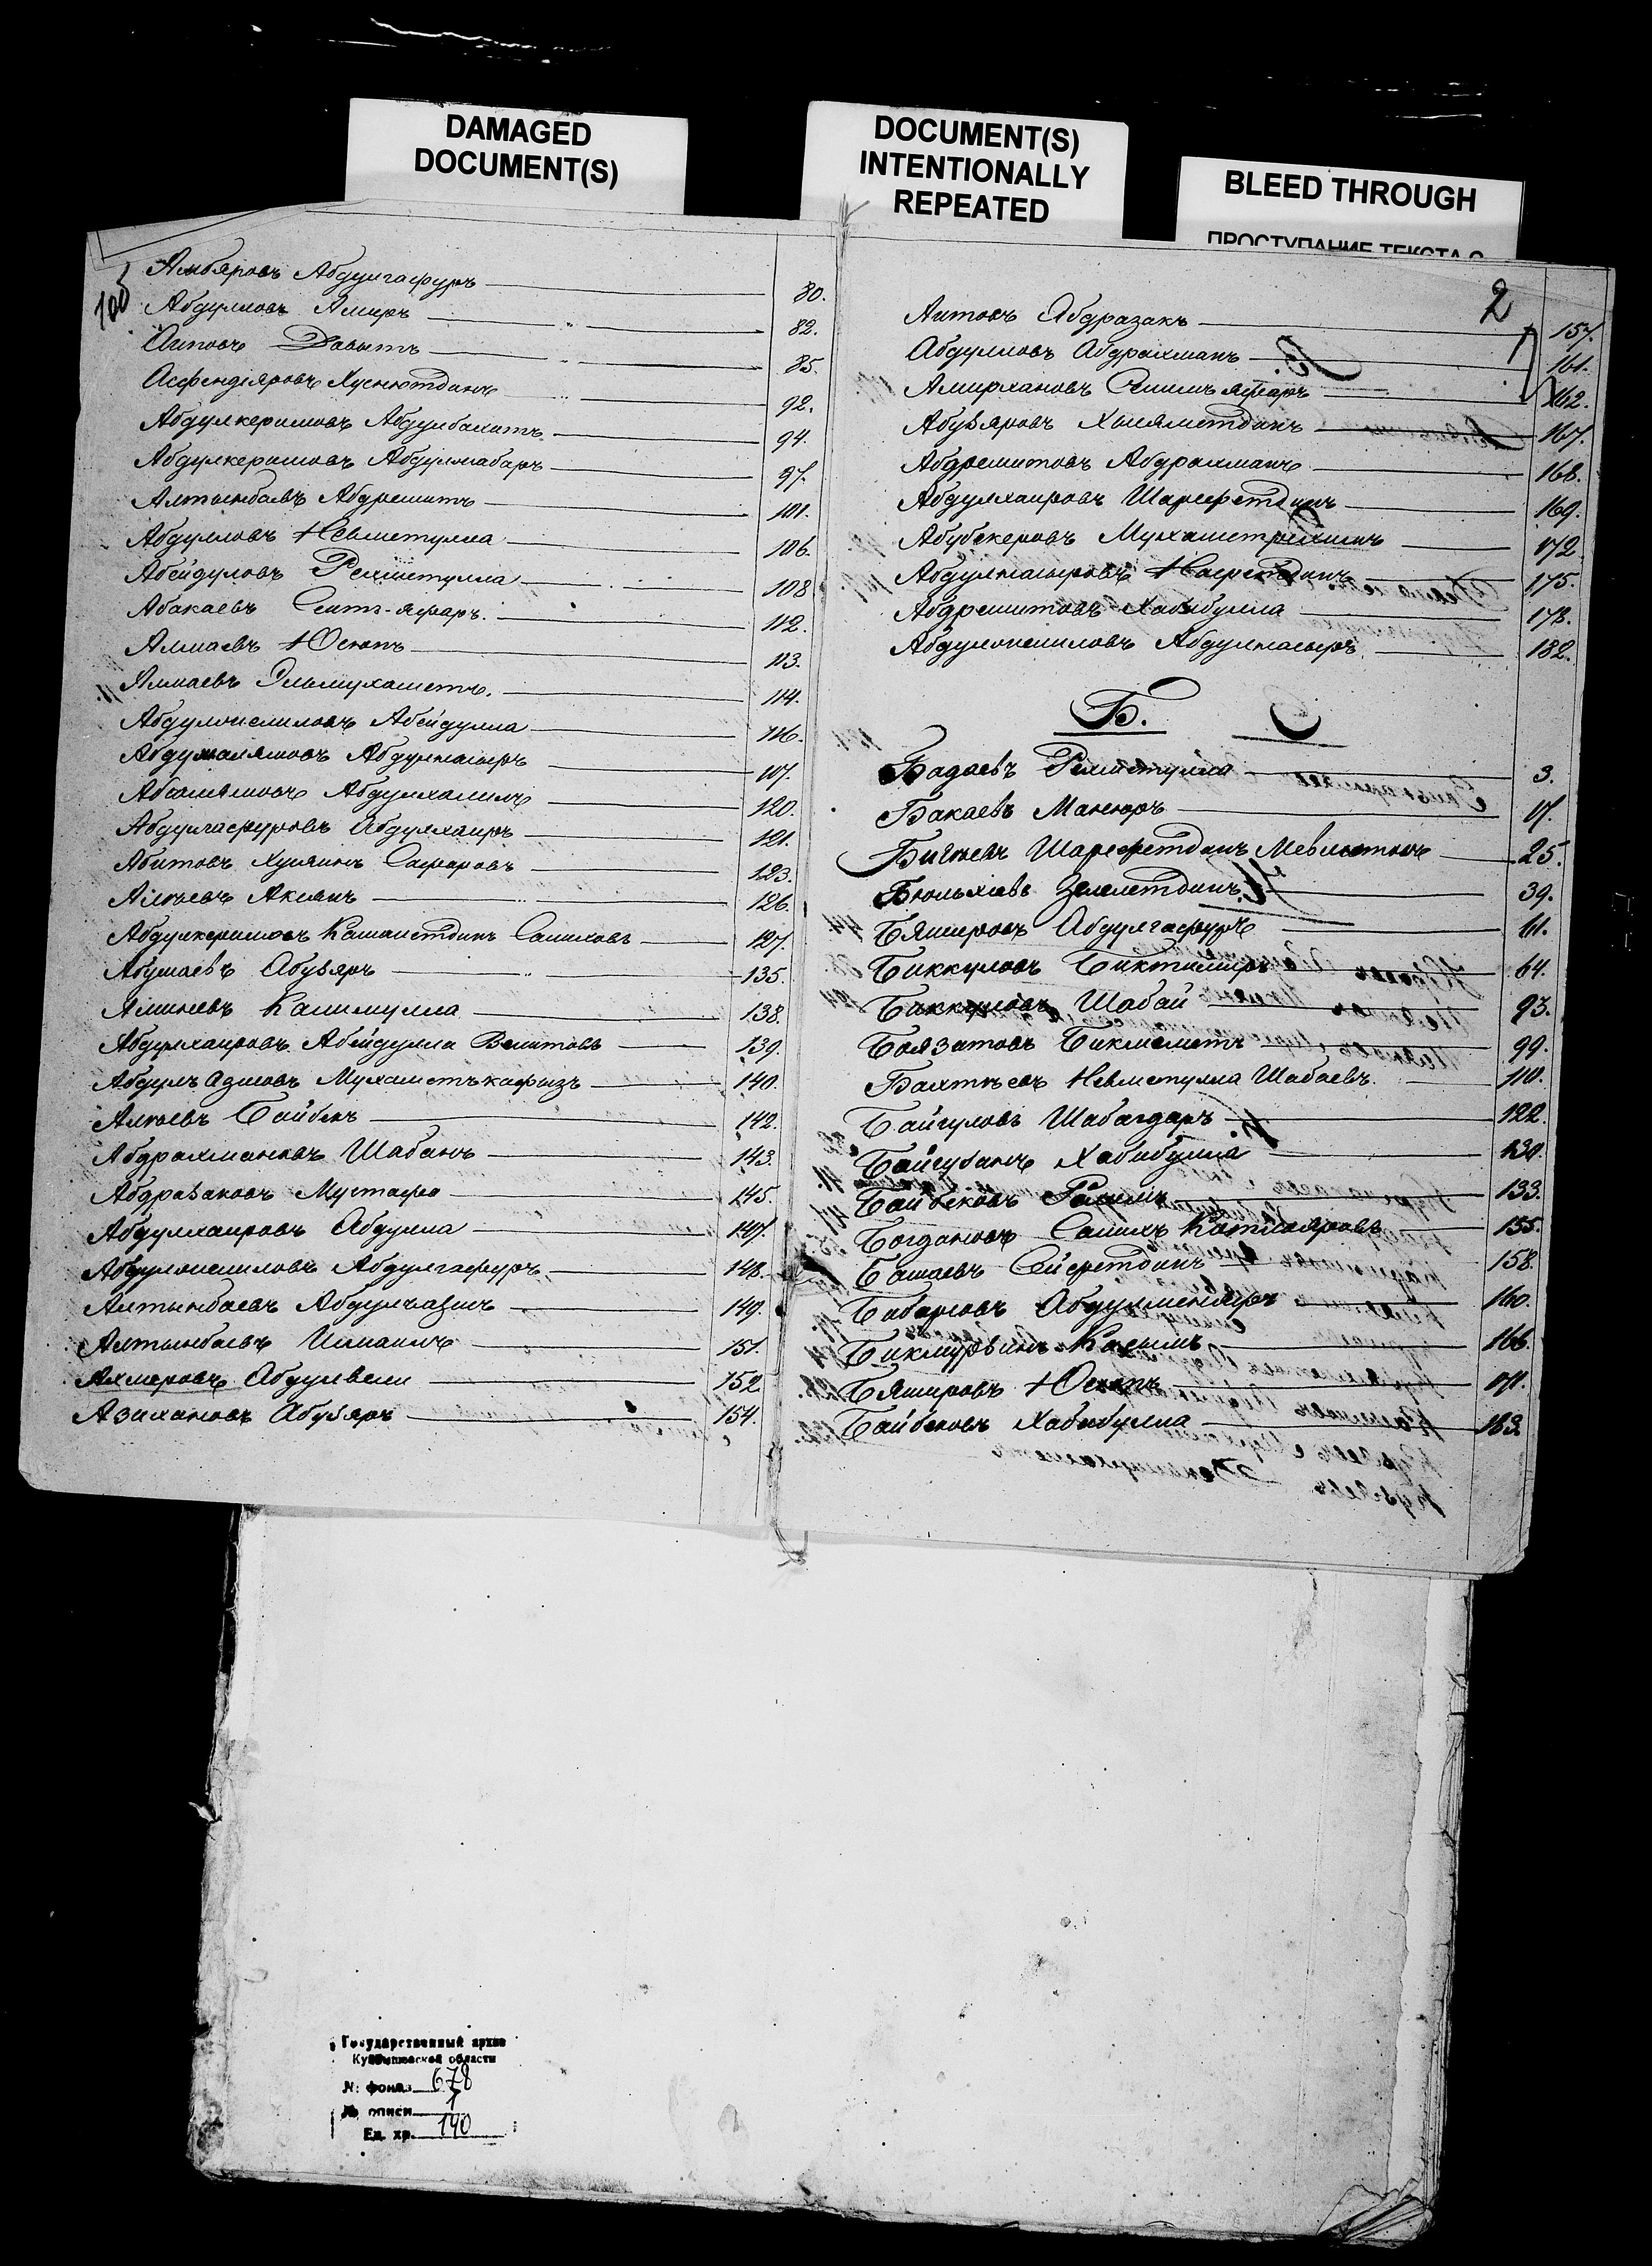 DAMAGED
DOCUMENT(S)
DOCUMENT(S)
INTENTIONALLY
REPEATED
BLEED THROUGH
ПРОСТУПАНИЕ ТЕКСТА С
Амбяровъ Абдулгафуръ 80.
Абдулловъ Амиръ 82.
Аитовъ Давытъ 85.
Асфендеяровъ Хуснютдинъ 92.
Абдулкеримовъ Абдулбакитъ 94.
Абдулкеримовъ Абдулжабаръ 97.
Алтынбаевъ Абдрешитъ 101.
Абдулловъ Невметулла 106.
Абейдуловъ Рехметулла 108
Абакаевъ Сеитъ-яфаръ. 112.
Алмаевъ Юсюпъ 113.
Алмаевъ Эльмухаметъ. 114.
Абдулоисмиловъ Абейдулла 116.
Абдулмаламовъ Абдулнасыръ 117.
Абдулхалимъ 120.
Абдулгафуровъ Абдулхаиръ 121.
Абитовъ Хусяинъ Сафаровъ 123.
Алюевъ Аксянъ 126.
Абдулкеримовъ Камалетдинъ Салиховъ 127.
Абушаевъ Абузяръ 135.
Аминевъ Калимулла 138.
Абдулхаировъ Абейдулла Велитовъ 139.
Абдулъазиовъ Мухаметъкафизъ 140.
Алюевъ Байбекъ 142.
Абдрахмановъ Шабанъ 143.
Абдразаковъ Мустафа 145.
Абдулхаировъ Абдулла 147.
Абдулоисмиловъ Абдулгафуръ 148.
Алтынбаевъ Абдулъазисъ 149.
Алтынбаевъ Исмаилъ 151.
Ахмеровъ Абдулвели 152
Азисхановъ Абузяръ 154.
2
Аитовъ Абдразакъ 157.
Абдулловъ Абдрахманъ 161.
Амирхановъ Салимъяфаръ 162.
Абузяровъ Хисяметдинъ 167.
Абдрешитовъ Абдрахманъ 168.
Абдулхаировъ Шарефетдинъ 169.
Абубекеровъ Мухаметрахимъ 172
Абдулнасыровъ Насретдинъ 175.
Абдрешитовъ Хабибулла 178.
Абдулоисмиловъ Абдулнасыръ 182.
Б.
Бадаевъ Рехметулла 3.
Бакаевъ Мансюръ 17.
Бигневъ Шарефетдинъ Мевлютовъ 25.
Бюльхаевъ Зелялетдинъ 39.
Бяшировъ Абдулгафуръ 61.
Биккуловъ Биктимиръ 64.
Биккуловъ Шабай 93.
Баязитовъ Бикмаметъ 99.
Бахтеевъ Невметулла Шабаевъ. 110.
Байгуловъ Шабагдаръ 122.
Хабибулла 130.
Байбековъ Рахимъ 133.
Богдановъ Салихъ Котлояровъ 155.
Башаевъ Сейфетдинъ 158.
Бибарсовъ Абдулменияръ 160.
Бикмурзинъ Касымъ 166.
Бяшировъ Юсюпъ 171.
Байбековъ Хабибулла 183.
Государственный архив
Куйбышевской области
№ фонд 678
№ описи 1
Ед. хр. 140